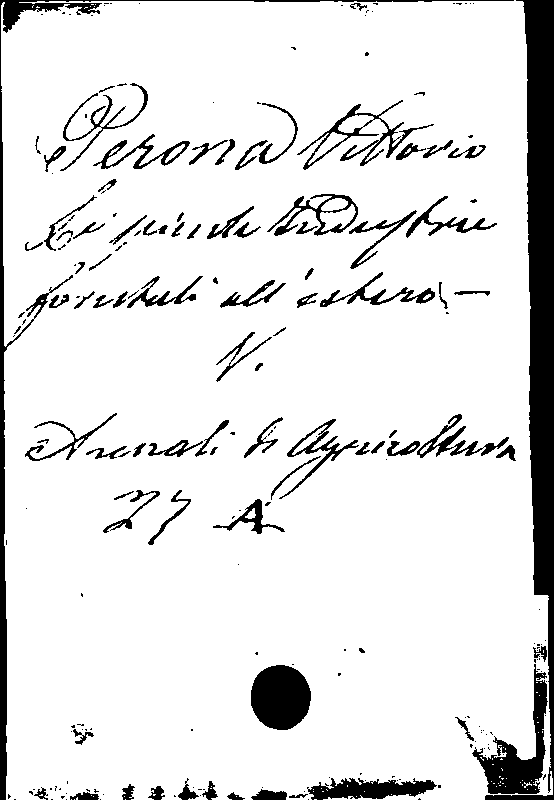 Perona Vittorio
Le piccole Industrie
forestali all'estero. —
V.
Annali di Agricoltura
27 A